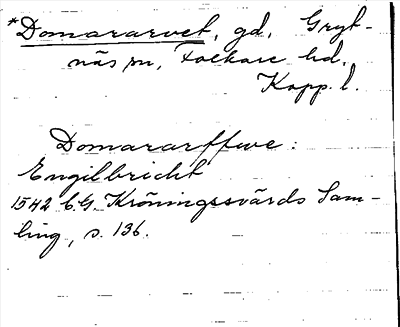 *Domararvet, gd, Gryt-
näs sn, Folkare hd.
Kopp. l.
Domararffwe:
Engilbricht
1542 C.G. Kröningssvärds Sam-
ling, s. 136.